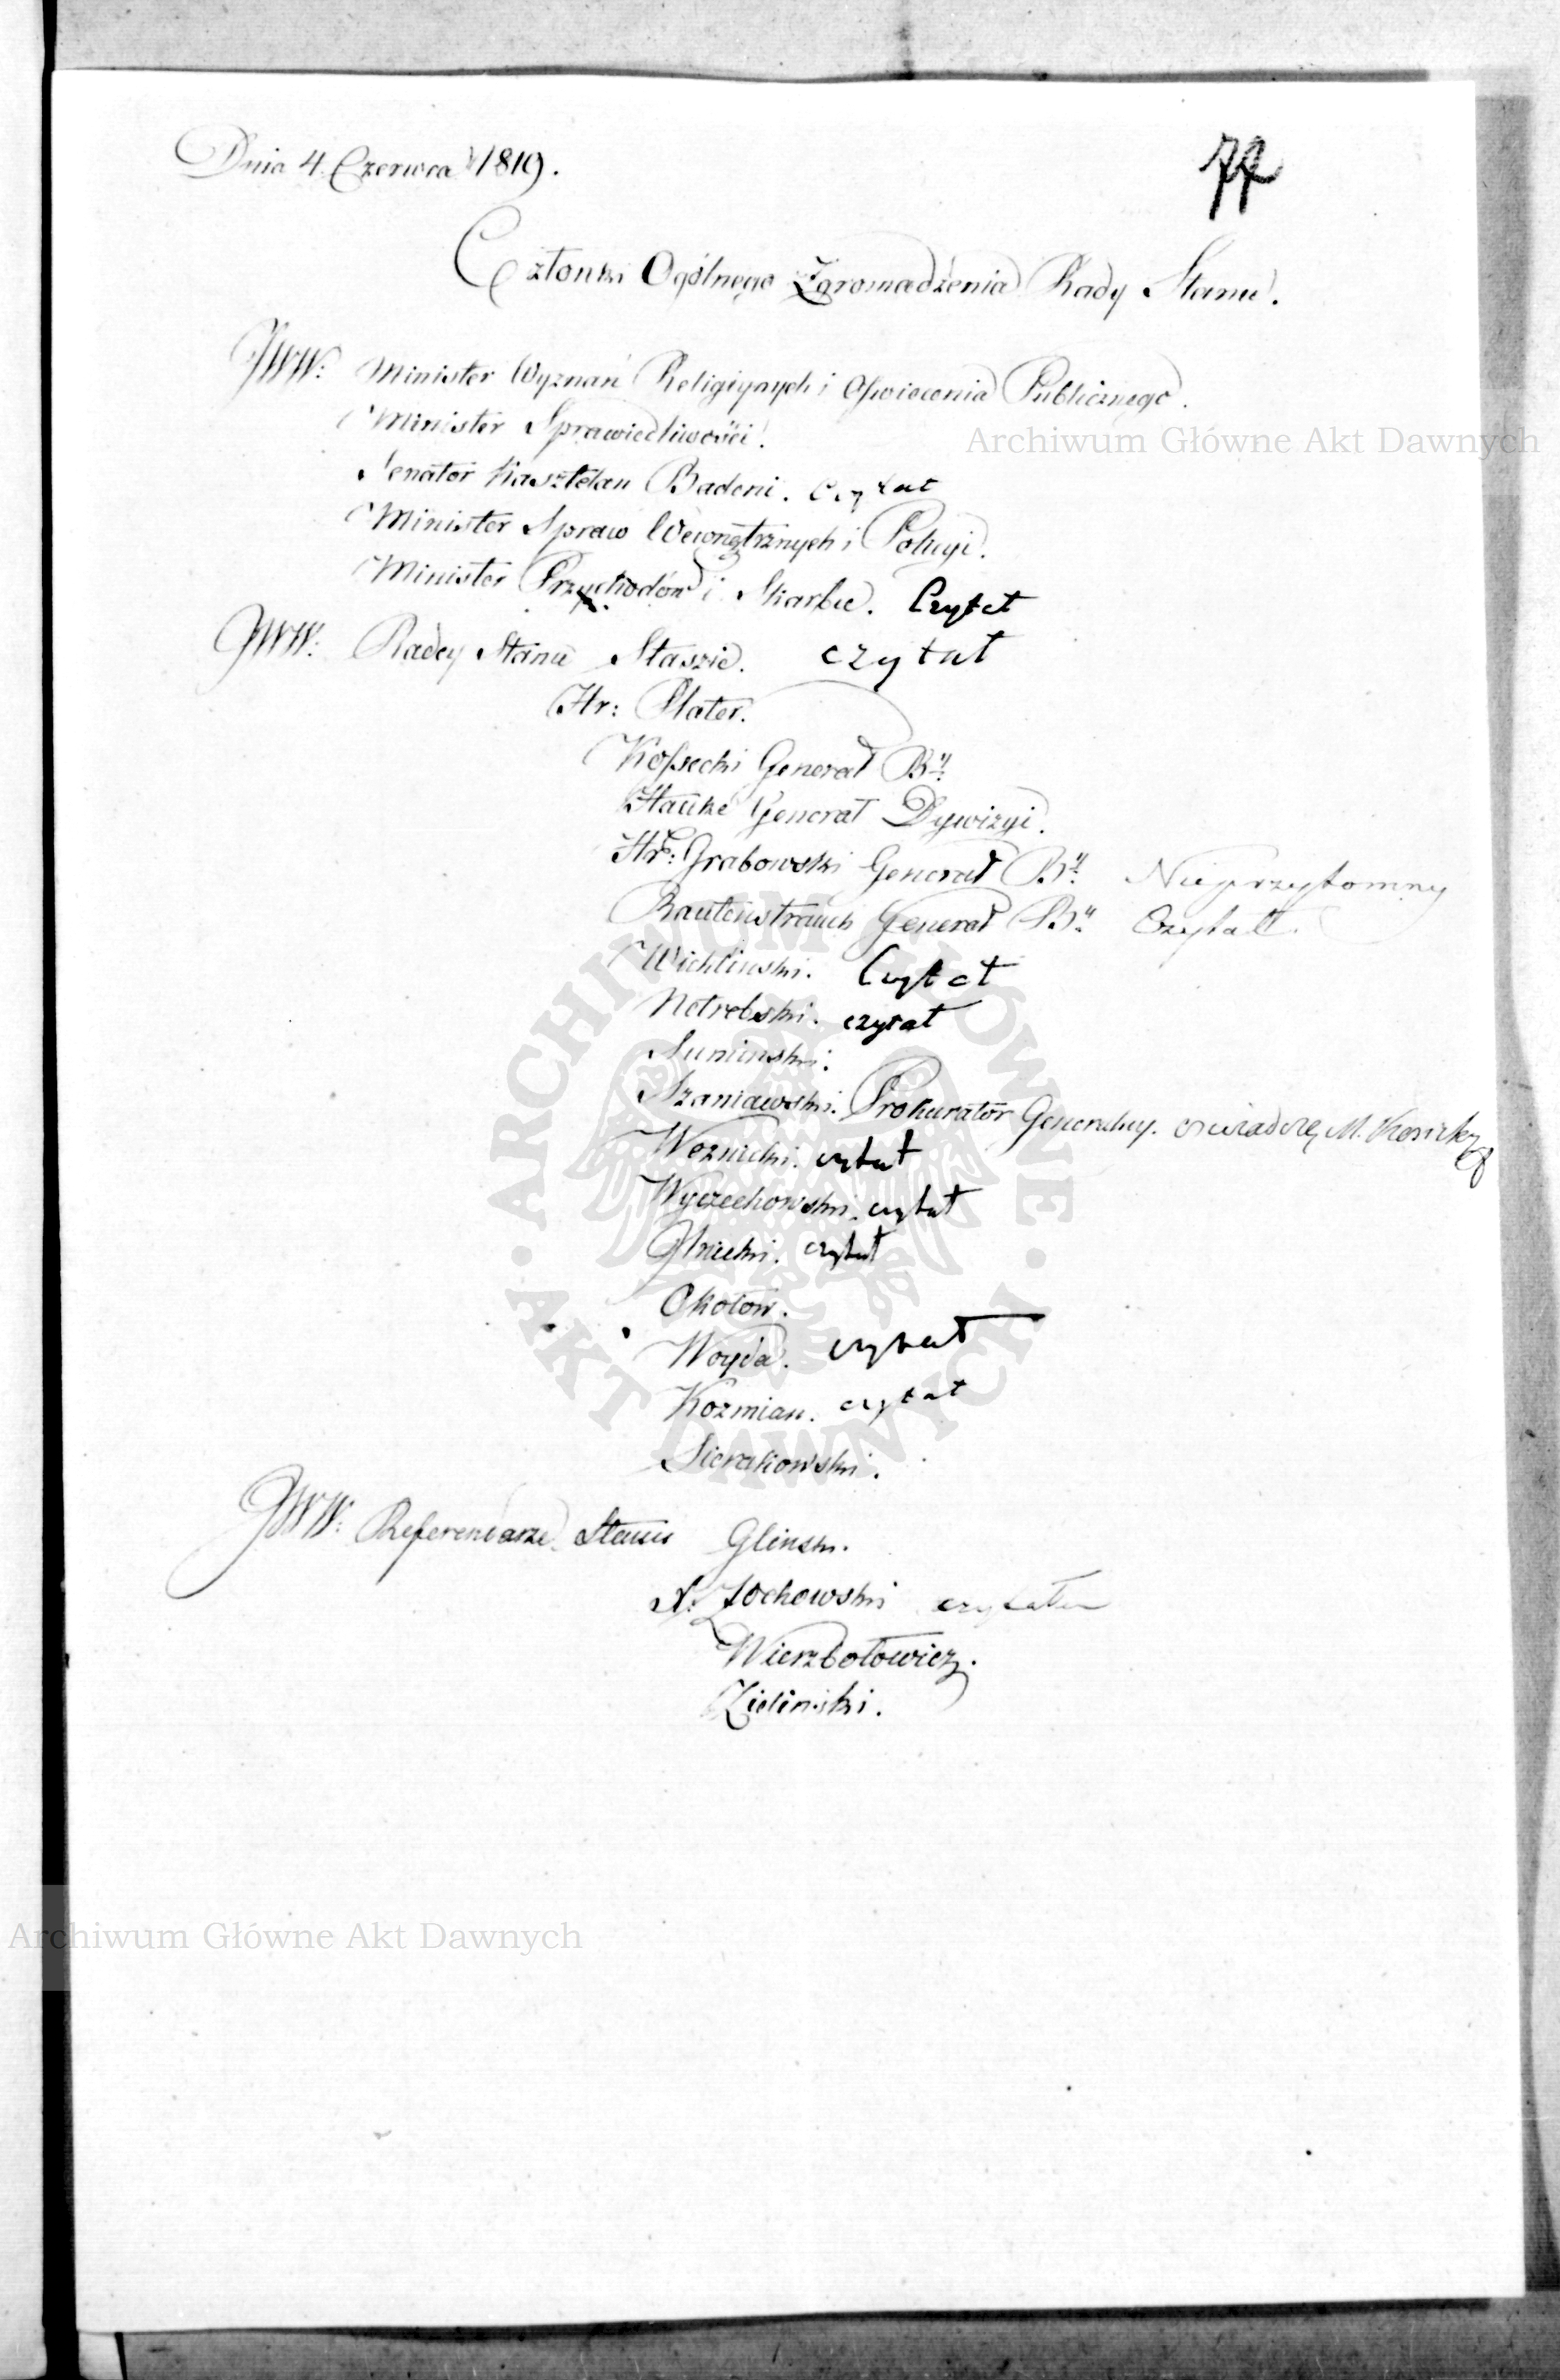 Dnia 4. Czerwca 1819.
77
Członki Ogólnego Zgromadzenia Rady Stanu.
JWW: Minister Wyznań Religiynych i Oświecenia Publicznego.
Minister Sprawiedliwości.
Archiwum Główne Akt Dawnych
Senator Kasztelan Badeni. Czytał
Minister Spraw Wewnętrznych i Policyi.
Minister Przychodów i Skarbu. Czytał
JWW: Radcy Stanu Staszic. czytał
Hr: Plater.
Kossecki Generał By.
Hauke Generał Dywizyi.
Hr: Grabowski Generał By. Nieprzytomny
Rautenstrauch Generał By. Czytał.
Wichliński. Czytał
Netrebski. czytał
Sumiński.
Szaniawski. Prokurator Generalny.
Woznicki. czytał
Wyczechowski. czytał
Glnicki. czytał
Okołow.
Woyda. czytał
Kozmian. czytał
Sierakowski.
JWW: Referendarze Stanu Glinski.
X: Żochowski czytałem
Wierzbołowicz.
Zieliński.
ARCHIWUM GŁÓWNE AKT DAWNYCH
Archiwum Główne Akt Dawnych